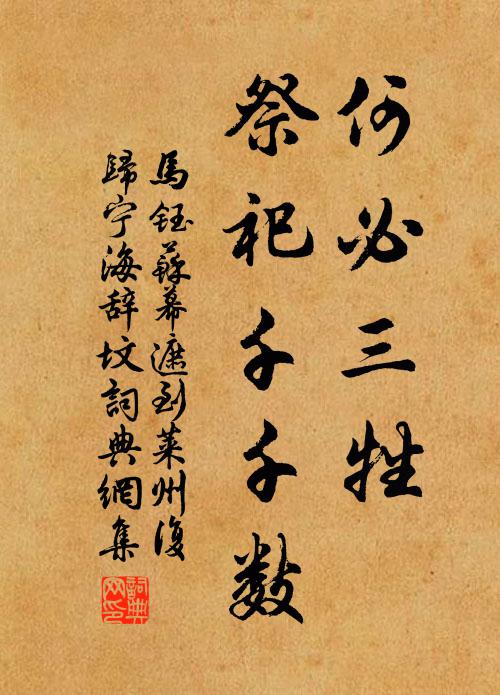 何必三牲
祭祀千千数
馬鈺蘇幕遮到萊州復
歸宁海辞坟詞典網集
詞典网印